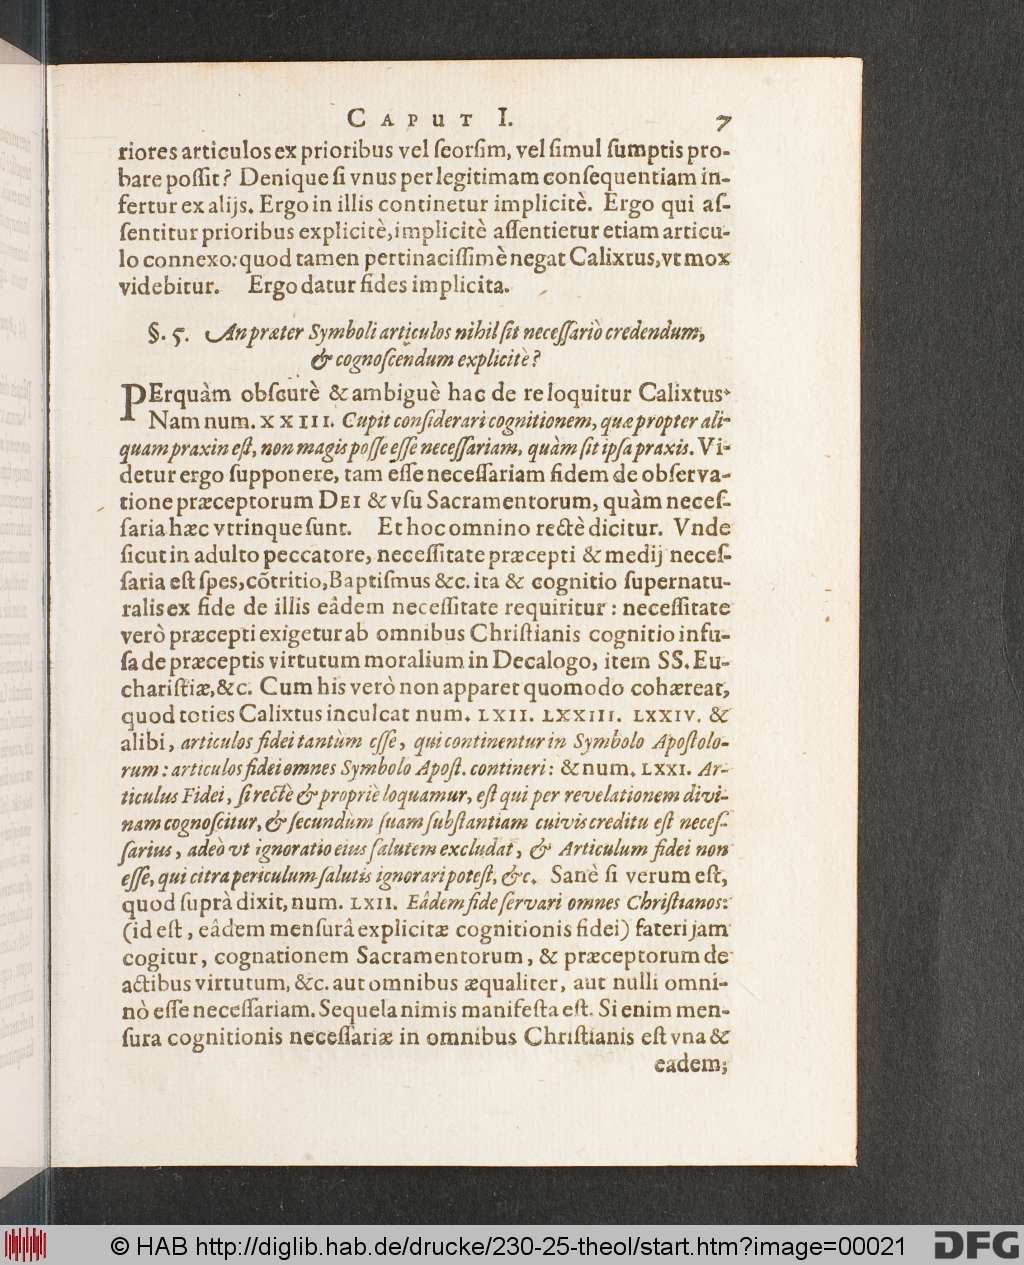 CAPUT I. 7
riores articulos ex prioribus vel ſeorſim, vel ſimul ſumptis pro-
bare poſſit? Denique ſi vnus per legitimam conſequentiam in-
fertur ex alijs. Ergo in illis continetur implicitè. Ergo qui aſ-
ſentitur prioribus explicitè, implicitè aſſentietur etiam articu-
lo connexo: quod tamen pertinaciſſimè negat Calixtus, vt mox
videbitur. Ergo datur fides implicita.
§. 5. An præter Symboli articulos nihil ſit neceſſariò credendum,
& cognoſcendum explicitè?
PErquàm obſcurè & ambiguè hac de re loquitur Calixtus.
Nam num. XXIII. Cupit conſiderari cognitionem, quæ propter ali-
quam praxin eſt, non magis poſſe eſſe neceſſariam, quàm ſit ipſa praxis. Vi-
detur ergo ſupponere, tam eſſe neceſſariam fidem de obſerva-
tione præceptorum DEI & vſu Sacramentorum, quàm neceſ-
ſaria hæc vtrinque ſunt. Et hoc omnino rectè dicitur. Vnde
ſicut in adulto peccatore, neceſſitate præcepti & medij neceſ-
ſaria eſt ſpes, cõtritio, Baptiſmus &c. ita & cognitio ſupernatu-
ralis ex fide de illis eâdem neceſſitate requiritur: neceſſitate
verò præcepti exigetur ab omnibus Chriſtianis cognitio infu-
ſa de præceptis virtutum moralium in Decalogo, item SS. Eu-
chariſtiæ, &c. Cum his verò non apparet quomodo cohæreat,
quod toties Calixtus inculcat num. LXII. LXXIII. LXXIV. &
alibi, articulos fidei tantùm eſſe, qui continentur in Symbolo Apoſtolo-
rum: articulos fidei omnes Symbolo Apoſt. contineri: & num. LXXI. Ar-
ticulus Fidei, ſi rectè & propriè loquamur, eſt qui per revelationem divi-
nam cognoſcitur, & ſecundùm ſuam ſubſtantiam cuivis creditu eſt neceſ-
ſarius, adeò vt ignoratio eius ſalutem excludat, & Articulum fidei non
eſſe, qui citra periculum ſalutis ignorari poteſt, &c. Sanè ſi verum eſt,
quod ſuprà dixit, num. LXII. Eâdem fide ſervari omnes Chriſtianos:
(id eſt, eâdem menſurâ explicitæ cognitionis fidei) fateri jam
cogitur, cognationem Sacramentorum, & præceptorum de
actibus virtutum, &c. aut omnibus æqualiter, aut nulli omni-
nò eſſe neceſſariam. Sequela nimis manifeſta eſt. Si enim men-
ſura cognitionis neceſſariæ in omnibus Chriſtianis eſt vna &
eadem;
© HAB http://diglib.hab.de/drucke/230-25-theol/start.htm?image=00021
DFG